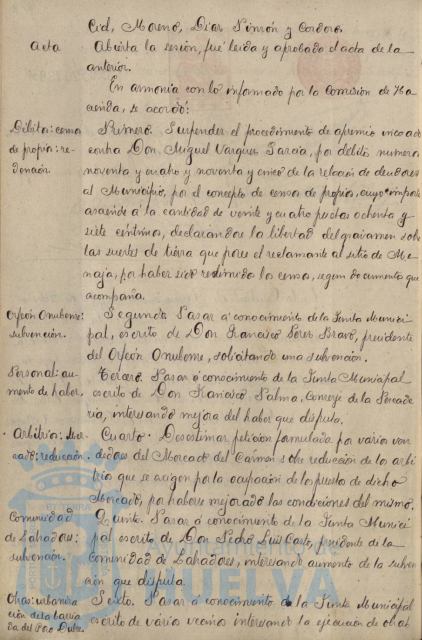 Cid, Moreno, Díaz Pinzón y Cordero.
Acta
Abierta la sesión, fué leida y aprobada el acta de la
anterior.
En armonia con lo informado por la Comisión de Ha-
cienda, se acordó:
Débito: censo
de propios: re-
dención.
Primero. Suspender el procedimiento de apremio incoado
contra Don Miguel Vazquez Garcia, por débitos números
noventa y cuatro y noventa y cinco de la relación de deudores
al Municipio, por el concepto de censo de propios, cuyo importe
asciende a la cantidad de veinte y cuatro pesetas ochenta y
siete centimos, declarandose la libertad del gravamen sobre
las suertes de tierra que posee el reclamante al sitio de
por haber sido redimido el censo, segun documento que
acompaña.
Orfeón Onubense:
subvención.
Segundo. Pasar a conocimiento de la Junta Munici-
pal, escrito de Don Francisco Bravo, presidente
del Orfeón Onubense, solicitando una subvención.
Personal: au-
mento de haber.
Tercero. Pasar a conocimiento de la Junta Municipal
escrito de Don Francisco Palma, Conserje de la Pescade-
ria, interesando mejora del haber que disfruta.
Arbitrio: Mer-
cado: reducción.
Cuarto. Desestimar petición formulada por varios ven-
dedores del Mercado del Carmen sobre reducción de los arbi-
trios que se exigen por la ocupación de los puestos de dicho
Mercado, por haberse mejorado las condiciones del mismo.
Comunidad
de Labradores:
subvención.
Quinto. Pasar a conocimiento de la Junta Munici-
pal escrito de Don Pedro Luis Casto, presidente de la
Comunidad de Labradores, interesando aumento de la subven-
ción que disfruta.
Obras: urbaniza-
ción de la barria-
da del Pozo Dulce.
Sexto. Pasar a conocimiento de la Junta Municipal
escrito de varios vecinos interesando la ejecución de obras
HUELVA